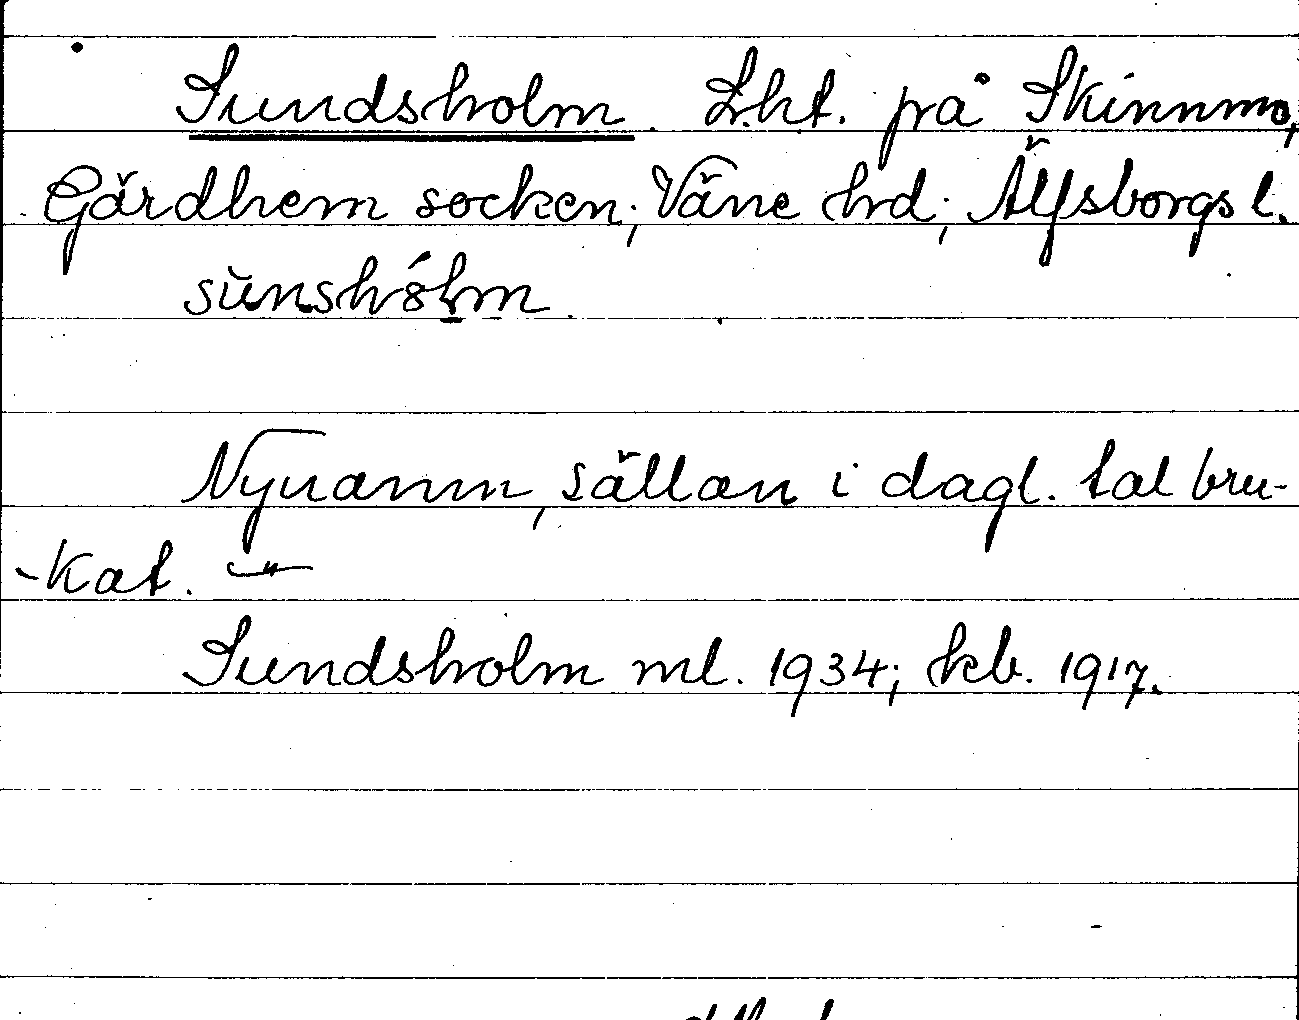 Sundsholm. Lht. på Skinnmo,
Gärdhem socken; Väne hrd; Älfsborgs l.
Nynamn, sällan i dagl. tal bru-
-kat.
Sundsholm ml. 1934; kb. 1917.